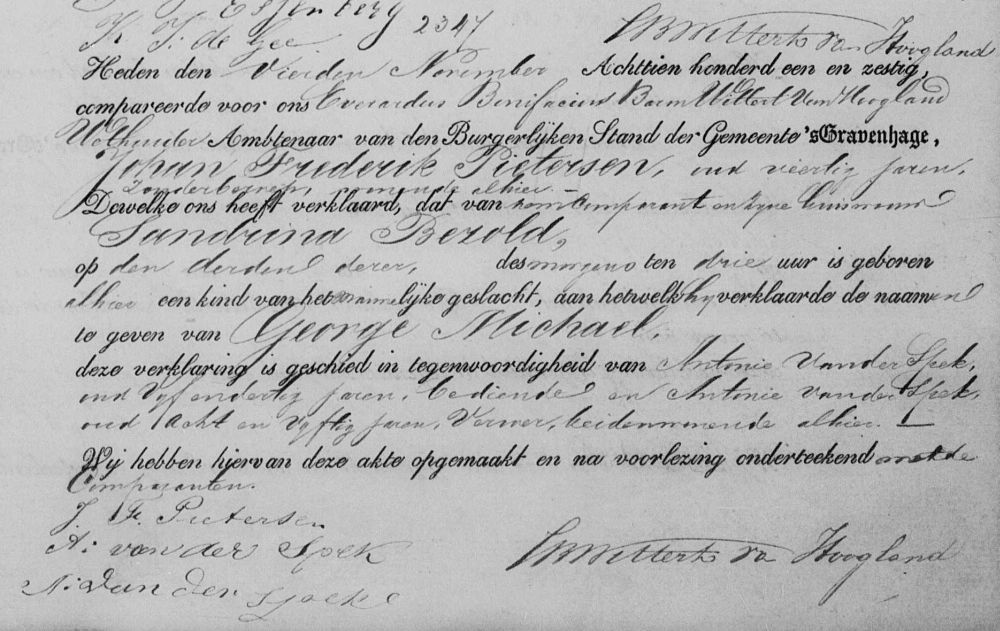 Essenberg
K. F. de Gee 2347 EBBWitterts van Hoogland
Heden den Vierden November Achttien honderd een en zestig,
compareerde voor ons Everardus Bonifacius Baron Wittert Van Hoogland
Wethouder Ambtenaar van den Burgerlijken Stand der Gemeente 'sGravenhage,
Johan Frederik Pietersen, oud veertig jaren,
zonder beroep, wonende alhier
Dewelke ons heeft verklaard, dat van hem Comparant en zyne huisvrouw
Sandrina Bezold,
op den derden dezer, des morgens ten drie uur is geboren
alhier een kind van het mannelijke geslacht, aan hetwelk hy verklaarde de naamen
te geven van George Michael.
deze verklaring is geschied in tegenwoordigheid van Antonie Vander Spek,
oud Vyf en dertig jaren, bediende en Antonie vander Spek,
oud Acht en Vyftig jaren, Verwer, beiden wonende alhier.
Wij hebben hiervan deze akte opgemaakt en na voorlezing onderteekend met de
Comparanten.
J. F. Pietersen
A: van der Spek
A: Van der Spek EBBWitterts van Hoogland